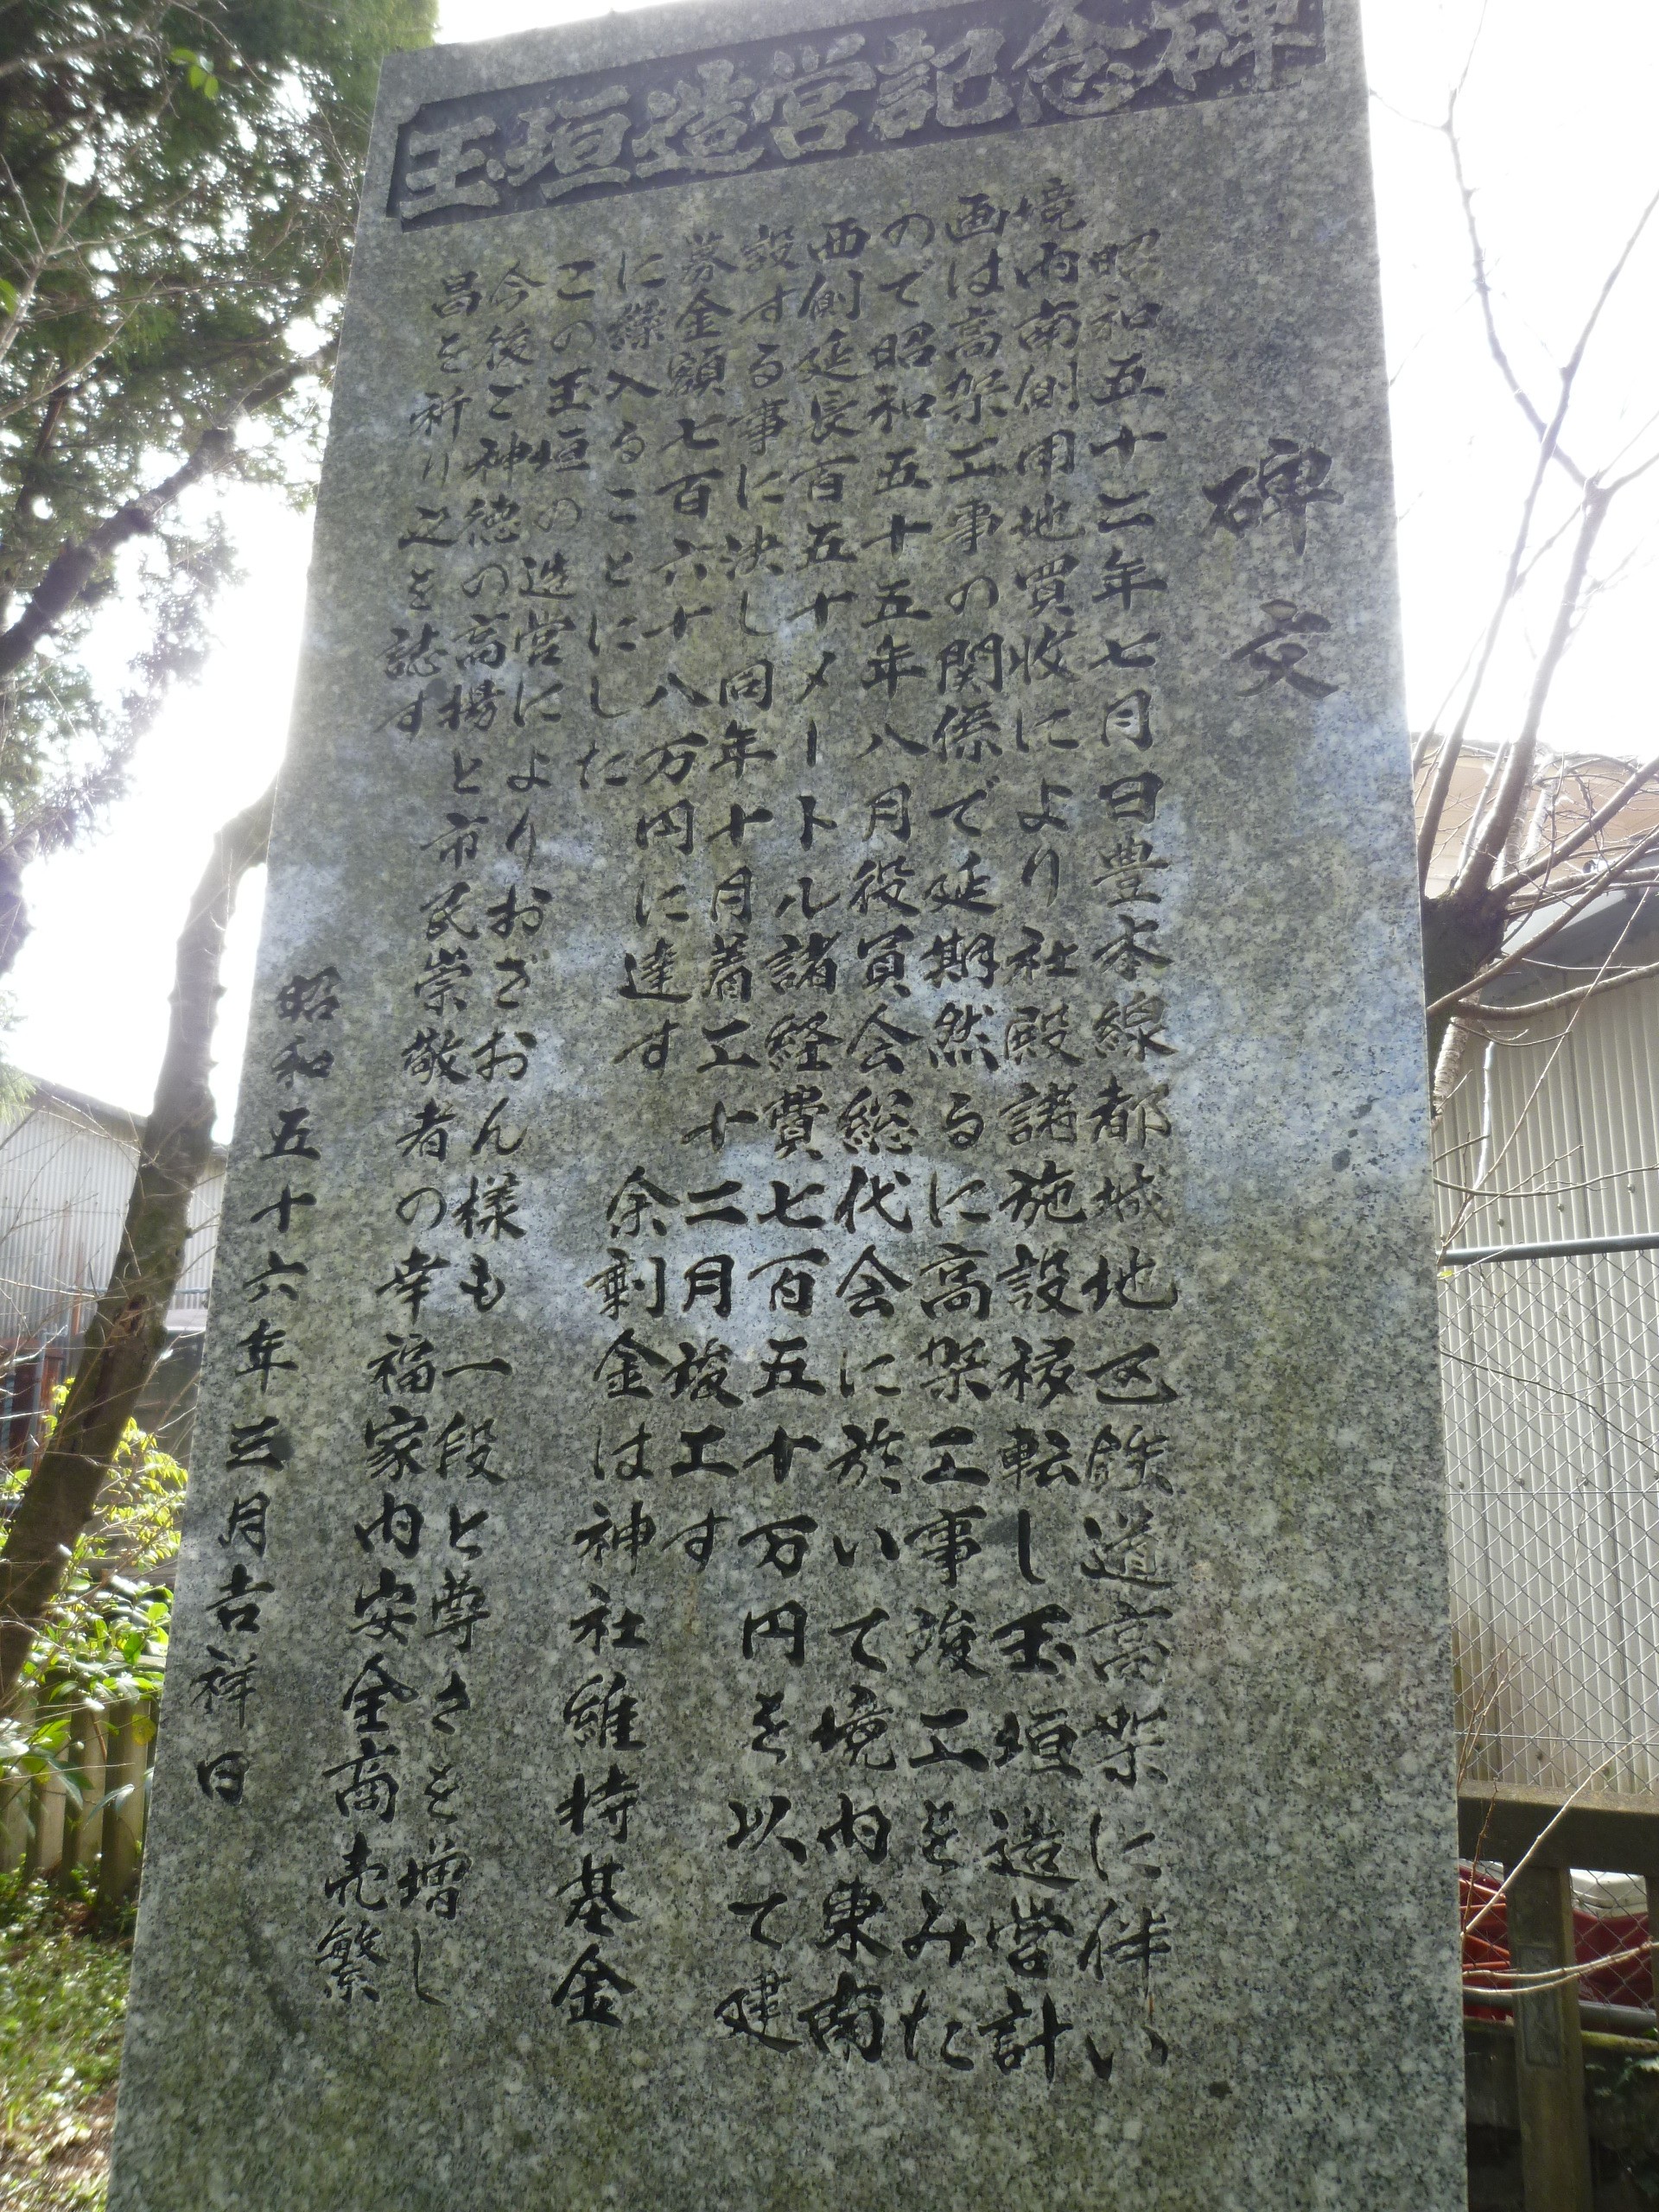 玉垣造営記念碑
碑文
昭和五十二年七月日豊本線都城地区鉄道高架に伴い
境内南側用地買収により社殿諸施設移転し玉垣造営計
画は高架工事の関係で延期然るに高架工事竣工をみた
ので昭和五十五年八月役員会総代会に於いて境内東南
西側延長百五十メートル諸経費七百五十万円を以て建
設する事に決し同年十月着工十二月竣工す
募金額七百六十八万円に達す 余剰金は神社維持基金
に繰入ることにした
この玉垣の造営によりおざおん様も一段と尊さを増し
今後ご神徳の高揚と市民崇敬者の幸福家内安全商売繁
昌を祈り之を誌す
昭和五十六年三月吉祥日